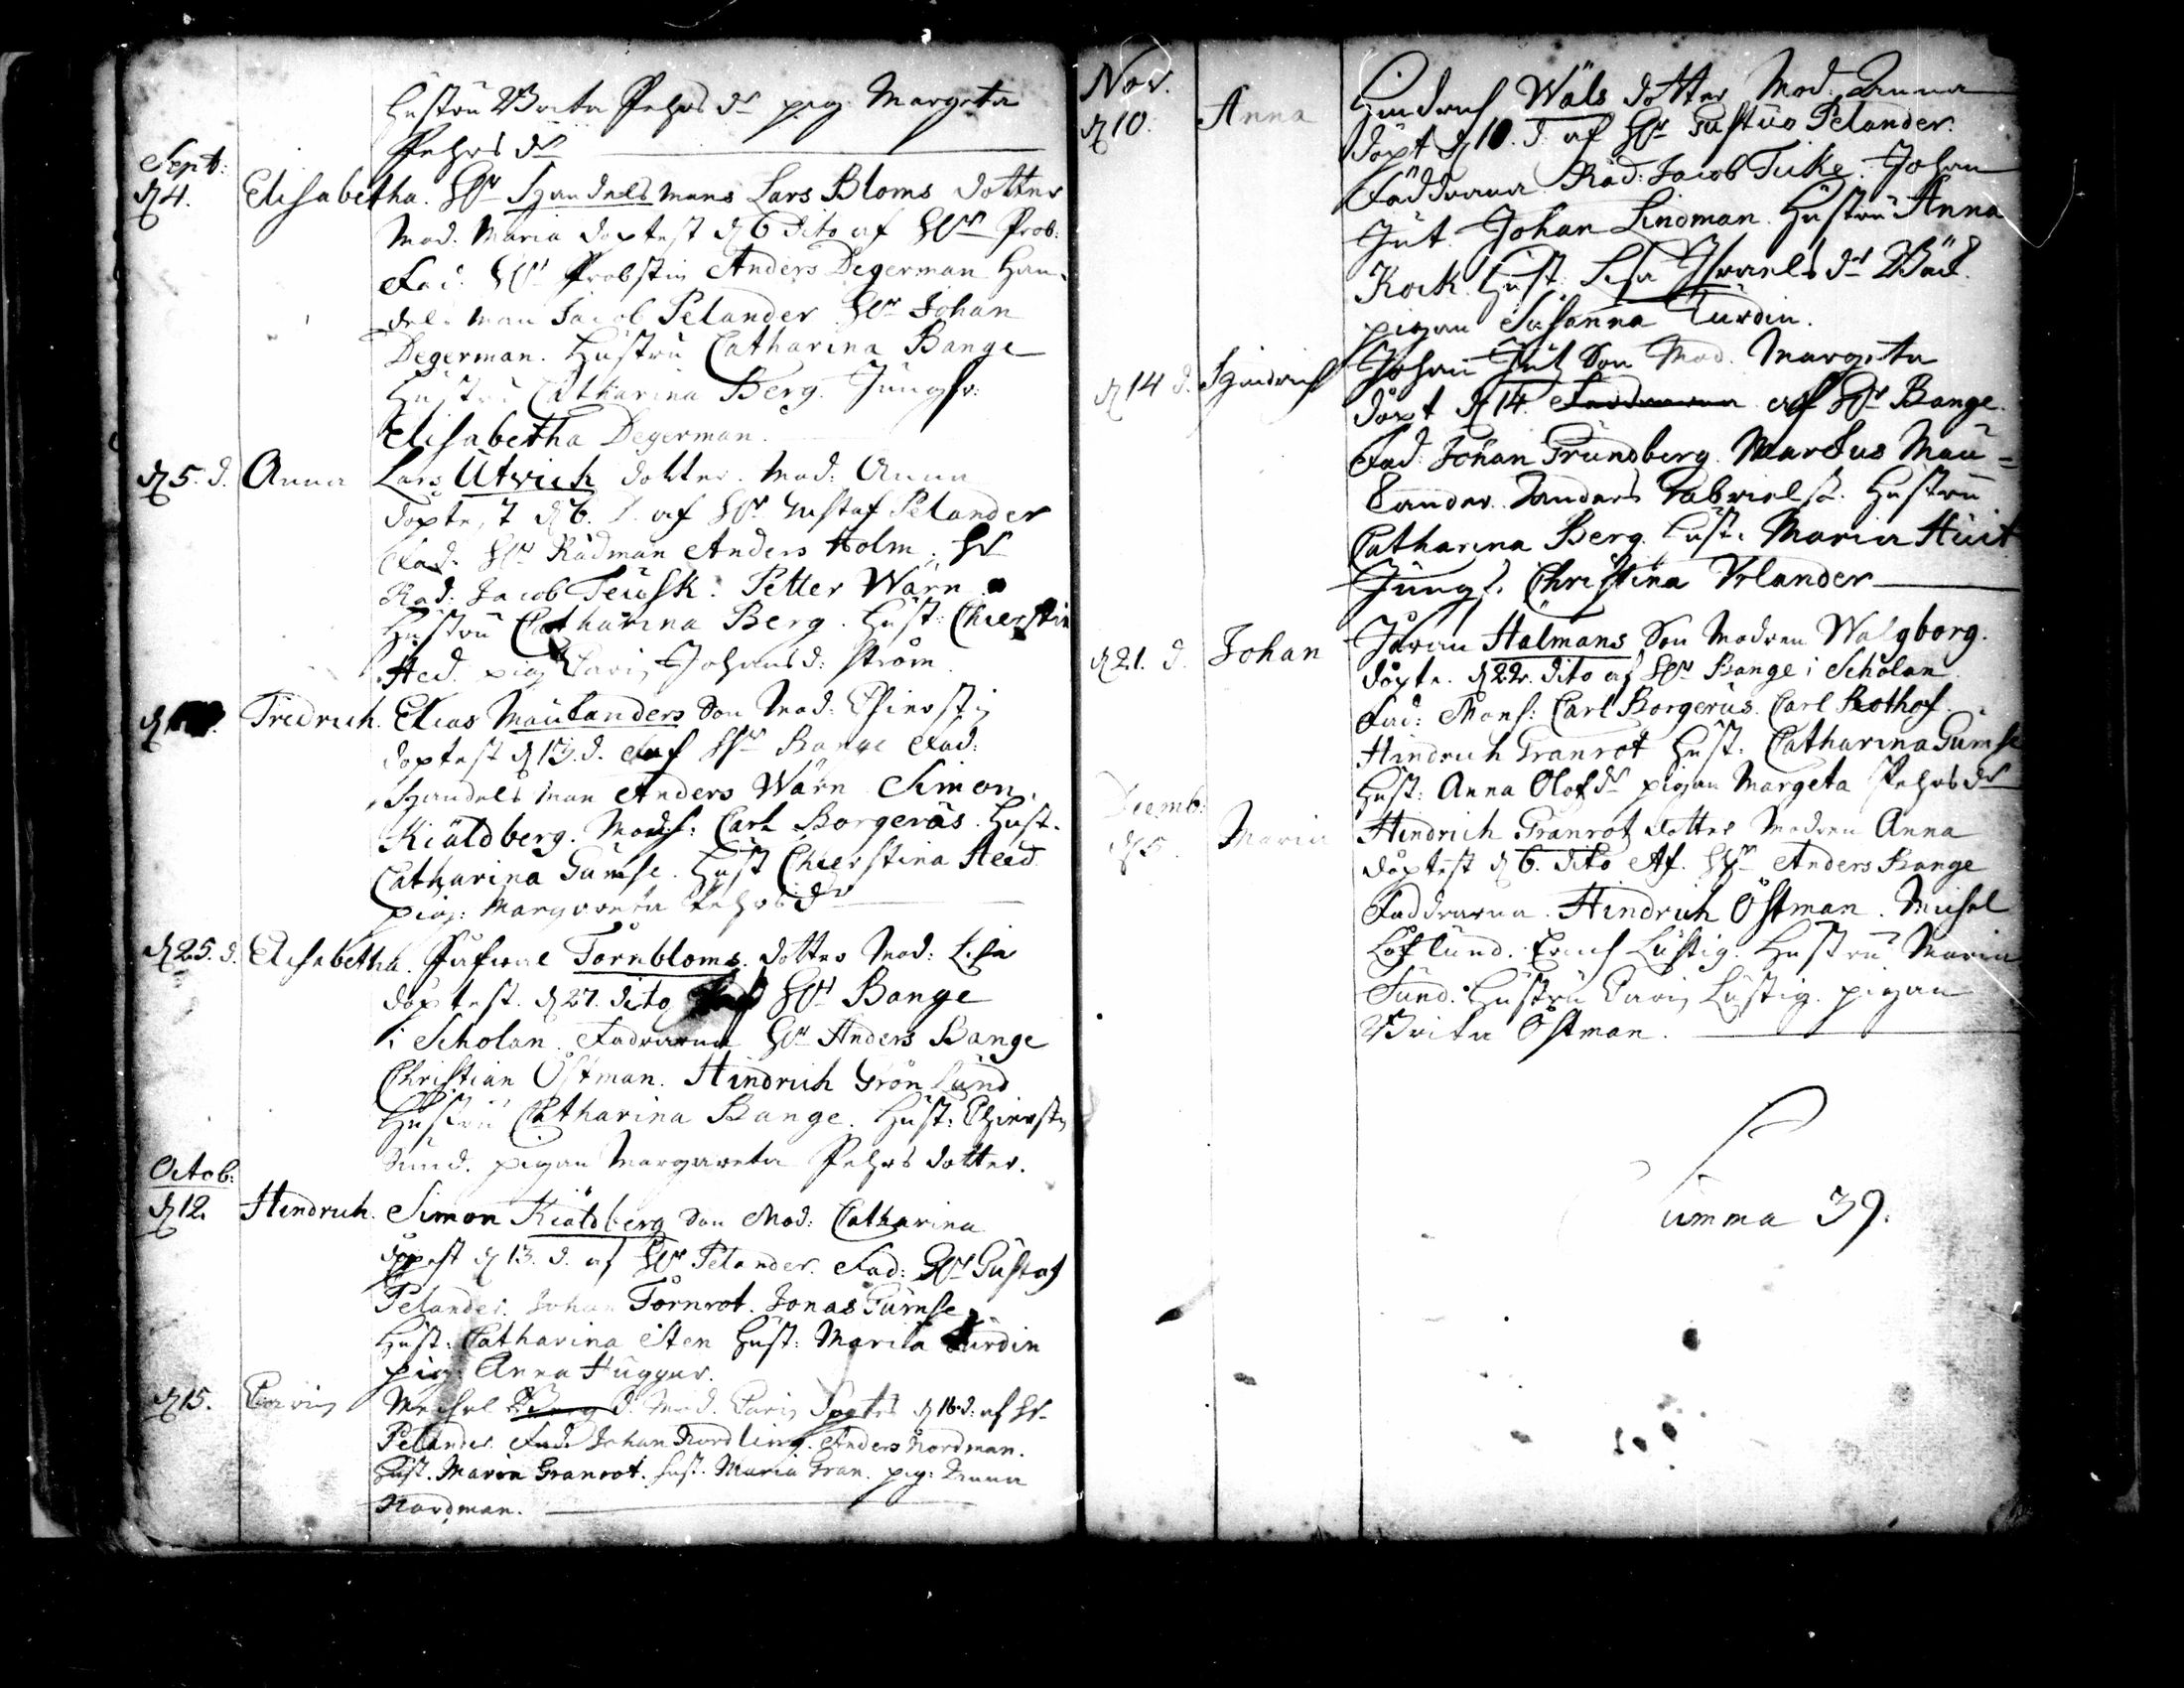 Hustru Brita Pehrs dr pig. Margeta
Pehrs dr
Sept:
d 4. Elisabetha. Hr Handelsmans Lars Bloms dotter
Mod. Maria döptest d 6 dito af Hr Prob:
Fad. Hr Probstin Anders Degerman Han-
dels man Jacob Pelander Hr Johan
Degerman. Hustru Catharina Bange
Hustru Catharina Berg. Jungfr:
Elisabetha Degerman.
d 5. d. Anna Lars Utrich dotter. Mod: Anna
döptest d 6. d. af Hr Gustaf Pelander
Fad. Hr Rådman Anders Holm. Hr
Råd. Jacob Teusk. Petter Wärn
Hustru Catharina Berg. Hust: Chierstin
Hed. pig Carin Johansd: ström.
d Fredrich. Elias Maulanders Son Mod: Chierstin
döptest d 13. d. af Hr Bange Fad:
Handels man Anders Wärn Simon
Kiäldberg. Mons: Carl Borgerus. Hust.
Catharina Gumse. Hust Chierstina Heed
pig: Margareta Pehrs dr
d 25. d. Elisabetha. Törnbloms. dotter Mod: Lisa
döptest. d 27. dito af Hr Bange
i Scholan. Fadrarna Hr Anders Bange
Christian Östman. Hindrich Grönlund
Hustru Catharina Bange. Hust: Chierstin
Sund. pigan Margareta Pehrs dotter.
Octob:
d 12. Hendrich. Simon Kiäldberg Son Mod: Catharina
döptest d 13. d. af Hr Pelander. Fad: Hr Gustaf
Pelander. Johan Törnrot. Jonas Gumse
Hust: Catharina Sten Hust: Maria Turdin
pig: Anna Huggur.
d 15. Carin Michel Berg d. Mod. Carin döptes d 16. d: af Hr
Pelander. Fad: Johan Nordling. Anders Nordman.
Hust. Maria Granrot. Hust. Maria Gran. pig: Anna
Nordman.
Nov.
d 10. Anna Hindrich Wäls dotter Mod. Anna
döpt d 10. d. af Hr Gustus Pelander.
Faddrarna Råd: Jacob Tuke. Johan
Jut. Johan Lindman. Hustru Anna
Kock. Hust. Lisa Israels dr Bäck
pigan Susanna Turdin.
d 14 d. Hindrich Johan Jut Son Mod. Margeta
döpt d 14. Faddrarna af Hr Bange.
Fad: Johan Grundberg. Marcus Mau-
lander. Anders Gabriels S. Hustru
Catharina Berg. Hust. Maria Huit
Jungf. Christina Velander
d 21. d. Johan Jöran Halmans Son Modren Walgborg.
döpte. d 22. dito af Hr Bange i Scholan
Fad: Mons: Carl Borgerus. Carl Rothof.
Hindrich Granrot Hust. Catharina Gumse
Hust: Anna Olofs dr pigan Margeta Pehrs dr
Decemb:
d 5. Maria Hindrich Granrot dotter Modren Anna
döptest d 6. dito Af. Hr Anders Bange
Faddrarna. Hindrich Östman. Michel
Löflund. Erich Lustig. Hustru Maria
Sund. Hustru Carin Lustig. pigan
Brita Östman.
Summa 39.